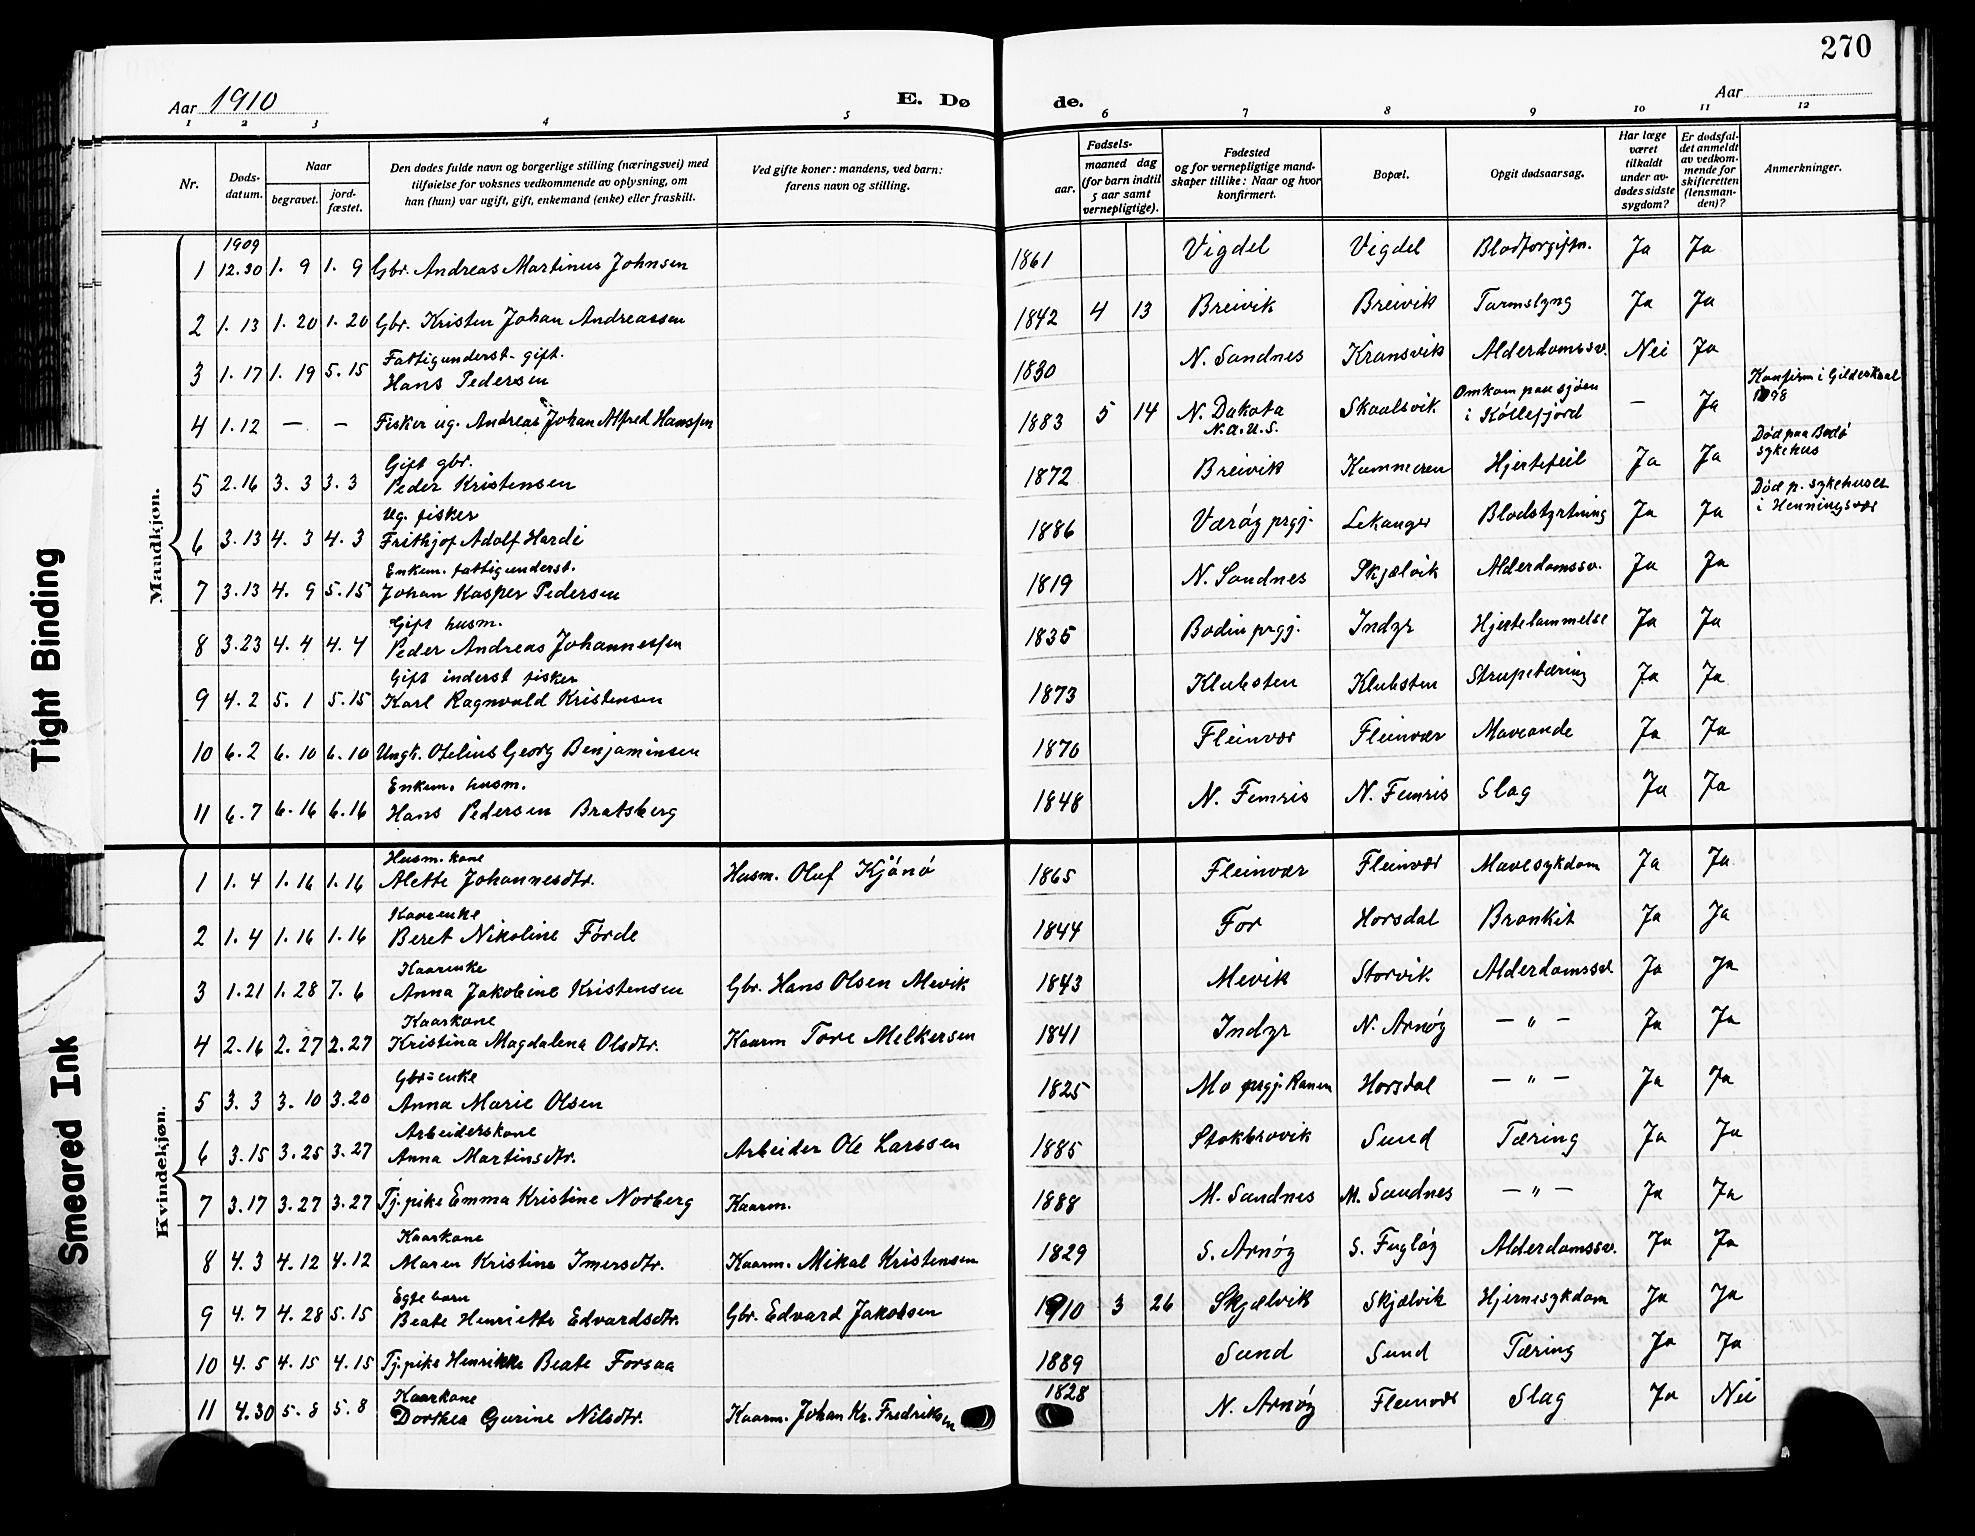 270
Aar 1910
E. Dø
de.
Aar
1 2 3 4 5 6 7 8 9 10 11 12
Nr.
Døds-
datum.
Naar
begravet.
jord-
fæstet.
Den dødes fulde navn og borgerlige stilling (næringsvei) med
tilføielse for voksnes vedkommende av oplysning, om
han (hun) var ugift, gift, enkemand (enke) eller fraskilt.
Ved gifte koner: mandens, ved barn:
farens navn og stilling.
Fødsels-
aar.
maaned dag
(for barn indtil
5 aar samt
vernepligtige).
Fødested
og for vernepligtige mand-
skaper tillike: Naar og hvor
konfirmert.
Bopæl.
Opgit dødsaarsag.
Har læge
været
tilkaldt
under av-
dødes sidste
sygdom?
Er dødsfal-
det anmeldt
av vedkom-
mende for
skifteretten
(lensman-
den)?
Anmerkninger.
Mandkjøn.
1909
1 12.30 1. 9 1. 9 Gbr. Andreas Martinus Johnsen 1861 Vigdel Vigdel Blodforgiftn. Ja Ja
2 1. 13 1. 20 1. 20 Gbr. Kristen Johan Andreassen 1842 4 13 Breivik Breivik Tarmslyng Ja Ja
Fattigunderst. gift.
3 1. 17 1. 19 5. 15 Hans Pedersen 1830 N. Sandnes Kransvik Alderdomssv. Nei Ja
Konfirm i Gildeskaal
1898
4 1. 12 — — Fisker ug. Andreas Johan Alfred Hanssen 1883 5 14 N. Dakota
N.a.U.S. Skaalsvik Omkom paa sjøen
i Köllefjord — Ja
Gift gbr.
5 2. 16 3. 3 3. 3 Peder Kristensen 1872 Breivik Kummeren Hjertefeil Ja Ja Död paa Bodö
sykehus
Ug. fisker
6 3. 13 4. 3 4. 3 Frithjof Adolf Hardi 1886 Værøy prgj. Lekanger Blodstyrtning Ja Ja Död p. sykehuset
i Henningsvær
Enkem. fattigunderst.
7 3. 13 4. 9 5. 15 Johan Kasper Pedersen 1819 N. Sandnes Skjælvik Alderdomssv. Ja Ja
Gift husm.
8 3. 23 4. 4 4. 4 Peder Andreas Johannessen 1835 Bodin prgj. Indyr Hjertelammelse Ja Ja
Gift inderst fisker
9 4. 2 5. 1 5. 15 Karl Ragnvald Kristensen 1873 Klubsten Klubsten Strupetæring Ja Ja
10 6. 2 6. 10 6. 10 Ungk. Otelius Georg Benjaminsen 1870 Fleinvær Fleinvær Maveonde Ja Ja
Enkem. husm.
11 6. 7 6. 16 6. 16 Hans Pedersen Bratsberg 1848 N. Femris N. Femris Slag Ja Ja
Kvindekjøn.
Husm. kone
1 1. 4 1. 16 1. 16 Alette Johannesdtr. Husm. Oluf Kjönö 1865 Fleinvær Fleinvær Mavesykdom Ja Ja
Kaarenke
2 1. 4 1. 16 1. 16 Beret Nikoline Förde 1844 For Horsdal Bronkit Ja Ja
Kaarenke
3 1. 21 1. 28 7. 6 Anna Jakobine Kristensen Gbr. Hans Olsen Mevik 1843 Mevik Storvik Alderdomssv. Ja Ja
Kaarkone
4 2. 16 2. 27 2. 27 Kristina Magdalena Olsdtr. Kaarm Tore Melkersen 1841 Indyr N. Arnøy — „ — Ja Ja
Gbr.enke
5 3. 3 3. 10 3. 20 Anna Marie Olsen 1825 Mo prgj. Ranen Horsdal — „ — Ja Ja
Arbeiderskone
6 3. 15 3. 25 3. 27 Anna Martinsdtr. Arbeider Ole Larssen 1885 Stokbrovik Sund Tæring Ja Ja
7 3. 17 3. 27 3. 27 Tj. pike Emma Kristine Norberg Kaarm. 1888 M. Sandnes M. Sandnes — „ — Ja Ja
Kaarkone
8 4. 3 4. 12 4. 12 Maren Kristine Imersdtr. Kaarm. Mikal Kristensen 1829 S. Arnøy S. Fugløy Alderdomssv. Ja Ja
Egte barn
9 4. 7 4. 28 5. 15 Beate Henriette Edvardsdtr. Gbr. Edvard Jakobsen 1910 3 26 Skjælvik Skjælvik Hjernesykdom Ja Ja
10 4. 5 4. 15 4. 15 Tj. pike Henrikke Beate Forsaa 1889 Sund Sund Tæring Ja Ja
Kaarkone
11 4. 30 5. 8 5. 8 Dorthea Gurine Nilsdtr. Kaarm. Johan Kr. Fredriksen 1828 N. Arnøy Fleinvær Slag Ja Nei
Tight Binding
Smeared Ink